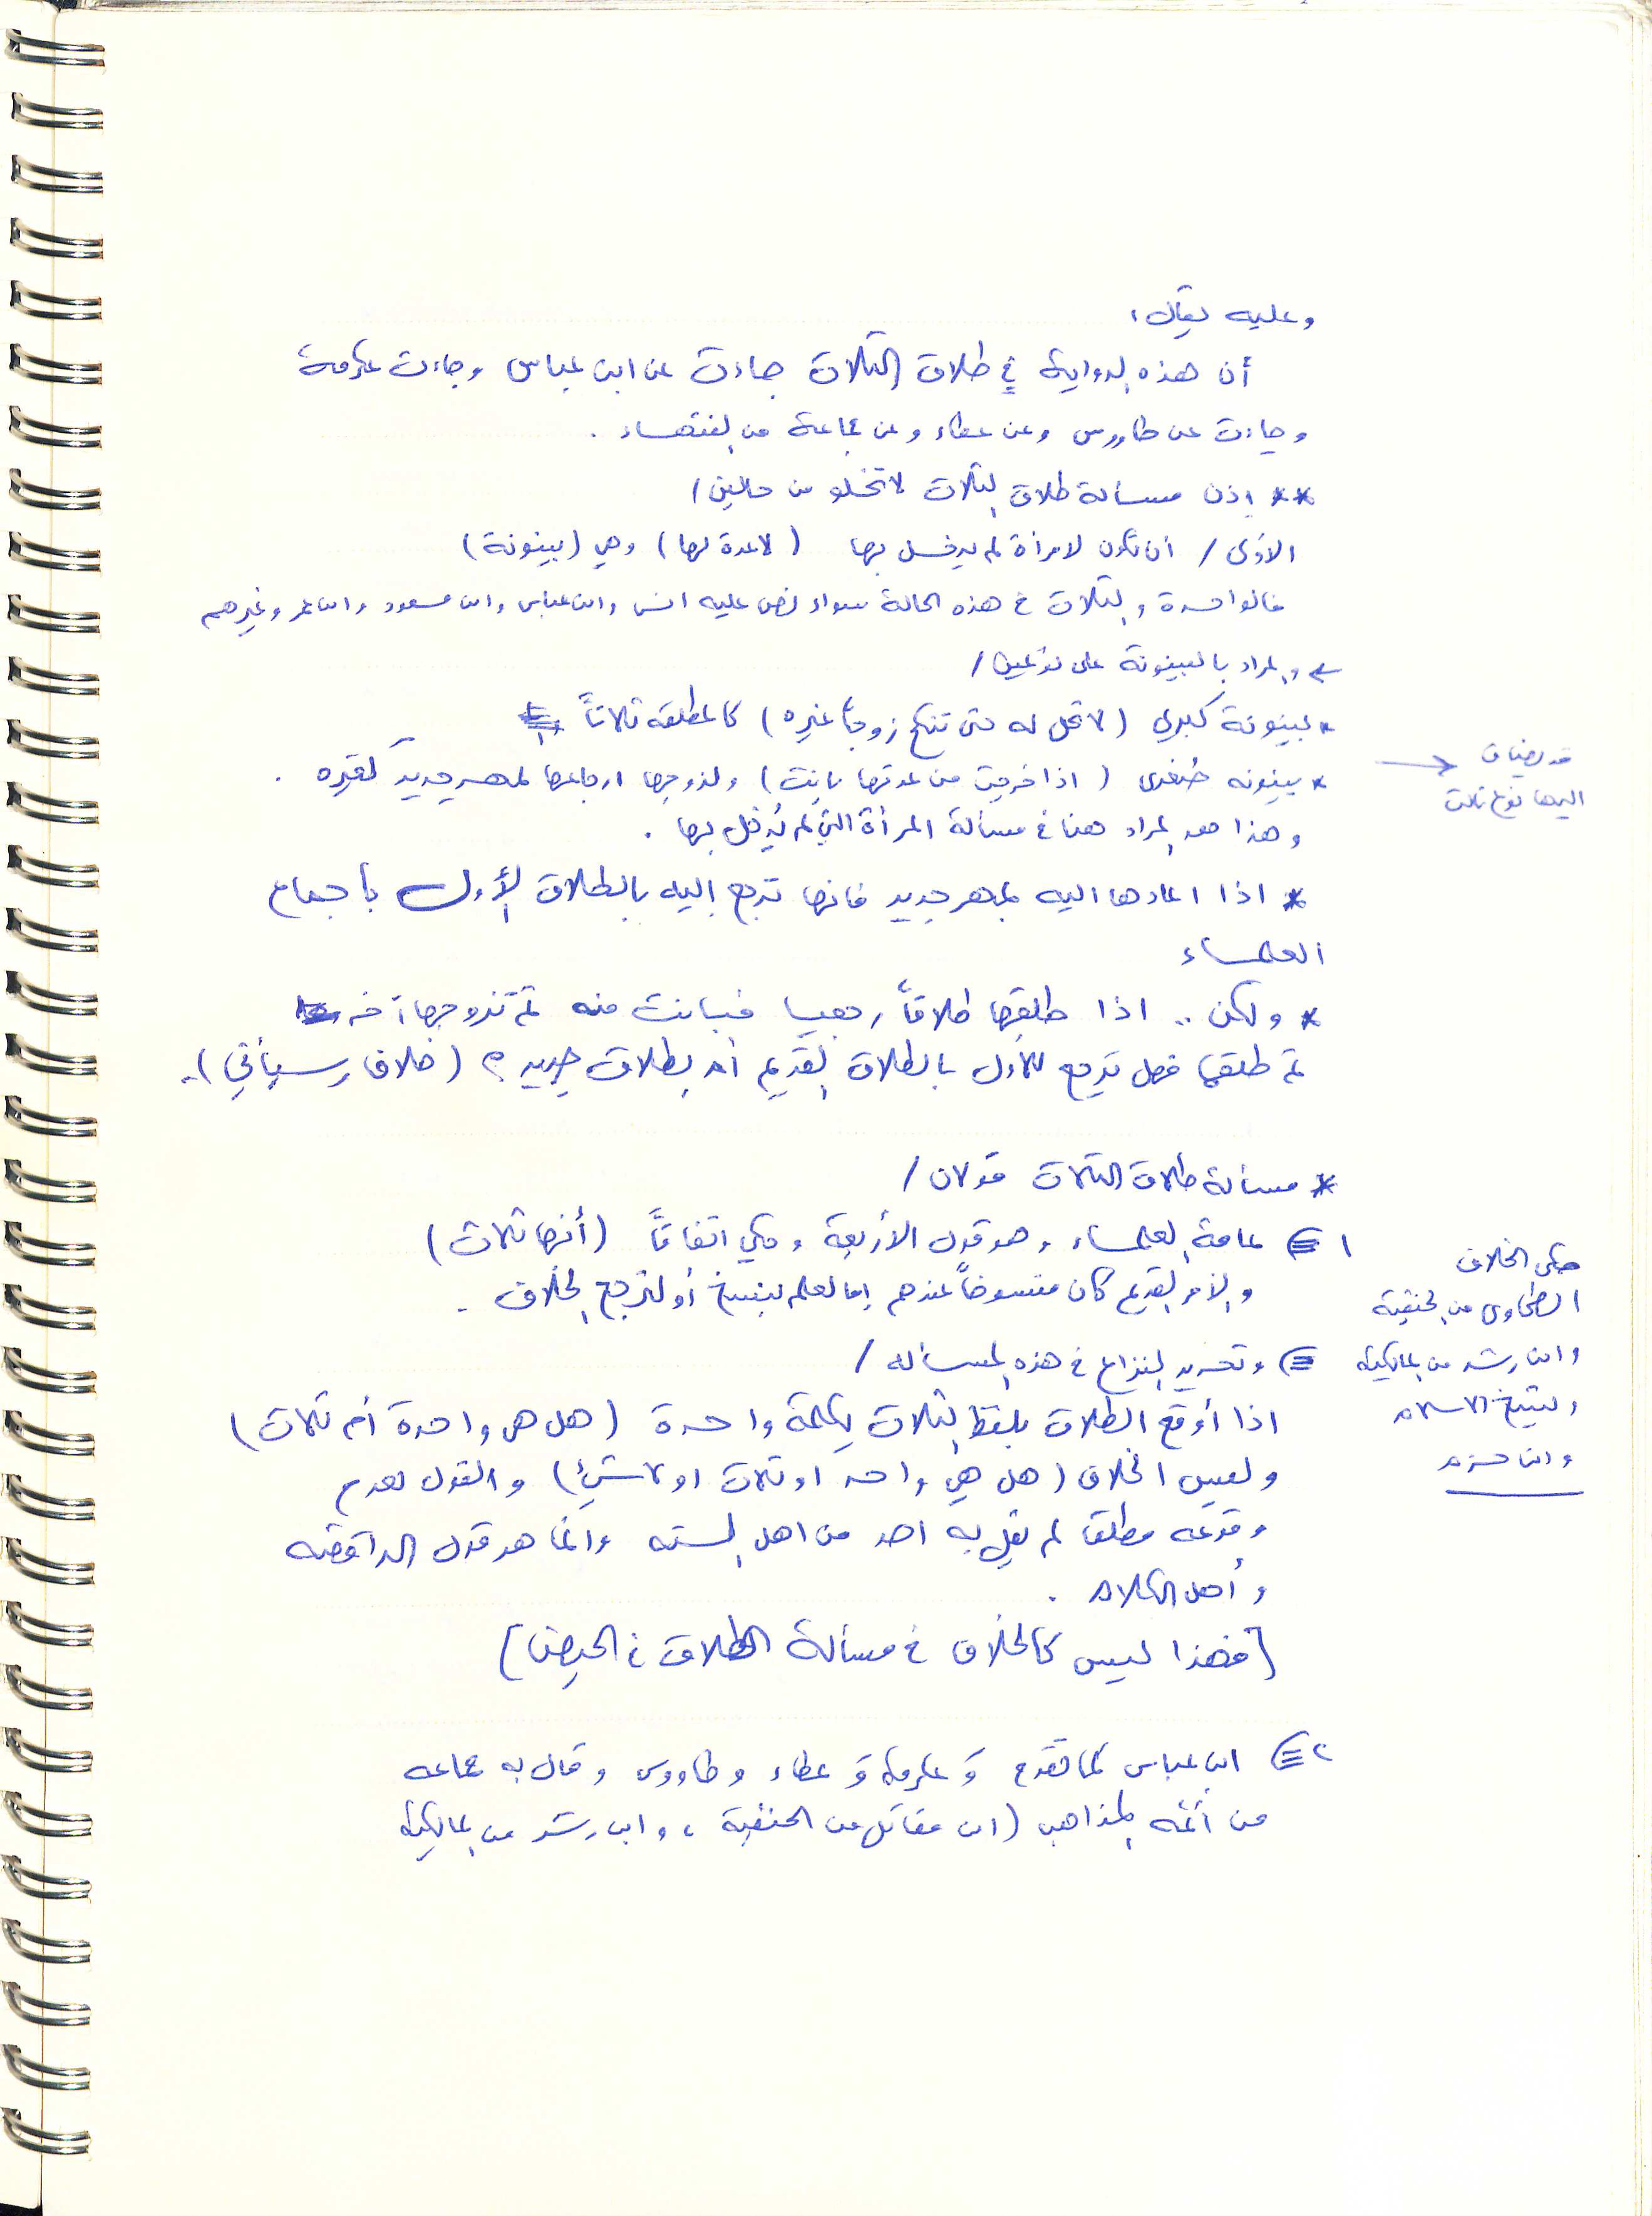 وعليه يقال،
أن هذه الرواية في طلاق الثلاث جاءت عن ابن عباس وجاءت عكرمة
وجاءت عن طاووس وعن عطاء وعن جماعة من الفقهاء .
** إذن مسألة طلاق الثلاث لا تخلو من حالين /
الأولى / أن تكون لامرأة لم يدخل بها ( لا عدة لها ) وهي ( بينونة )
فالواحدة والثلاث في هذه الحالة سواء نص عليه انس وابن عباس وابن مسعود وابن عمر وغيرهم
← والمراد بالبينونة على نوعين /
* بينونة كبرى ( لا تحل له حتى تنكح زوجاً غيره ) كالمطلقة ثلاثاً
* بينونه صغرى ( اذا خرجت من عدتها بانت ) ولزوجها ارجاعها بمهر جديد كغيره .
قد يضاف
اليها نوع ثالث
وهذا هو المراد هنا في مسألة المرأة التي لم يُدخل بها .
* اذا اعادها اليه بمهر جديد فانها ترجع إليه بالطلاق الأول بأجماع
العلماء
* ولكن .. اذا طلقها طلاقاً رجعيا فبانت منه ثم تزوجها آخر
ثم طلقها فهل ترجع للأول بالطلاق القديم أم بطلاق جديد ؟ ( خلاف وسيأتي ) .
* مسألة طلاق الثلاث قولان /
١ عامة العلماء وهو قول الأربعة وحكي اتفاقاً ( أنها ثلاث )
والأمر القديم كان منسوخاً عندهم إما لعلم بنسخ أو لترجع الخلاف .
وتحرير النزاع في هذه المسأله /
اذا أوقع الطلاق بلفظ الثلاث بكلمة واحدة ( هل هي واحدة أم ثلاث )
وليس الخلاف ( هل هي واحده او ثلاث او لا شيء ) والقول بعدم
وقوعه مطلقا لم يقل به احد من اهل السنه وانما هو قول الرافضه
وأهل الكلام .
[ فهذا ليس كالخلاف في مسألة الطلاق في الحيض ]
حكى الخلاف
الطحاوي من الحنفية
وابن رشد من المالكية
وشيخ الاسلام
وابن حزم
٢ ابن عباس كما تقدم وَ عكرمة وَ عطاء وطاووس وقال به جماعه
من أئمه المذاهب ( ابن مقاتل من الحنفية ، وابن رشد من المالكية